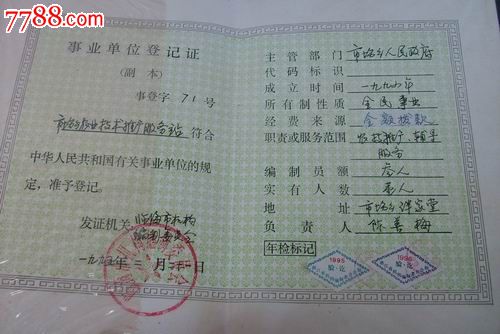 7788.com
事业单位登记证
(副本)
事登字 71 号
农业技术推广服务站 符合
中华人民共和国有关事业单位的规
定，准予登记。
发证机关 临海市机构
编制委员会
一九九五年 二 月 二十一 日
主管部门 市场乡人民政府
代码标识
成立时间
所有制性质 全民事业
经费来源 全额拨款
职责或服务范围 农技推广、辅导
服务
编制员额 叁人
实有人数 人
地址 市场乡
负责人 陈善梅
年检标记
1995
验·讫
1996
验·讫